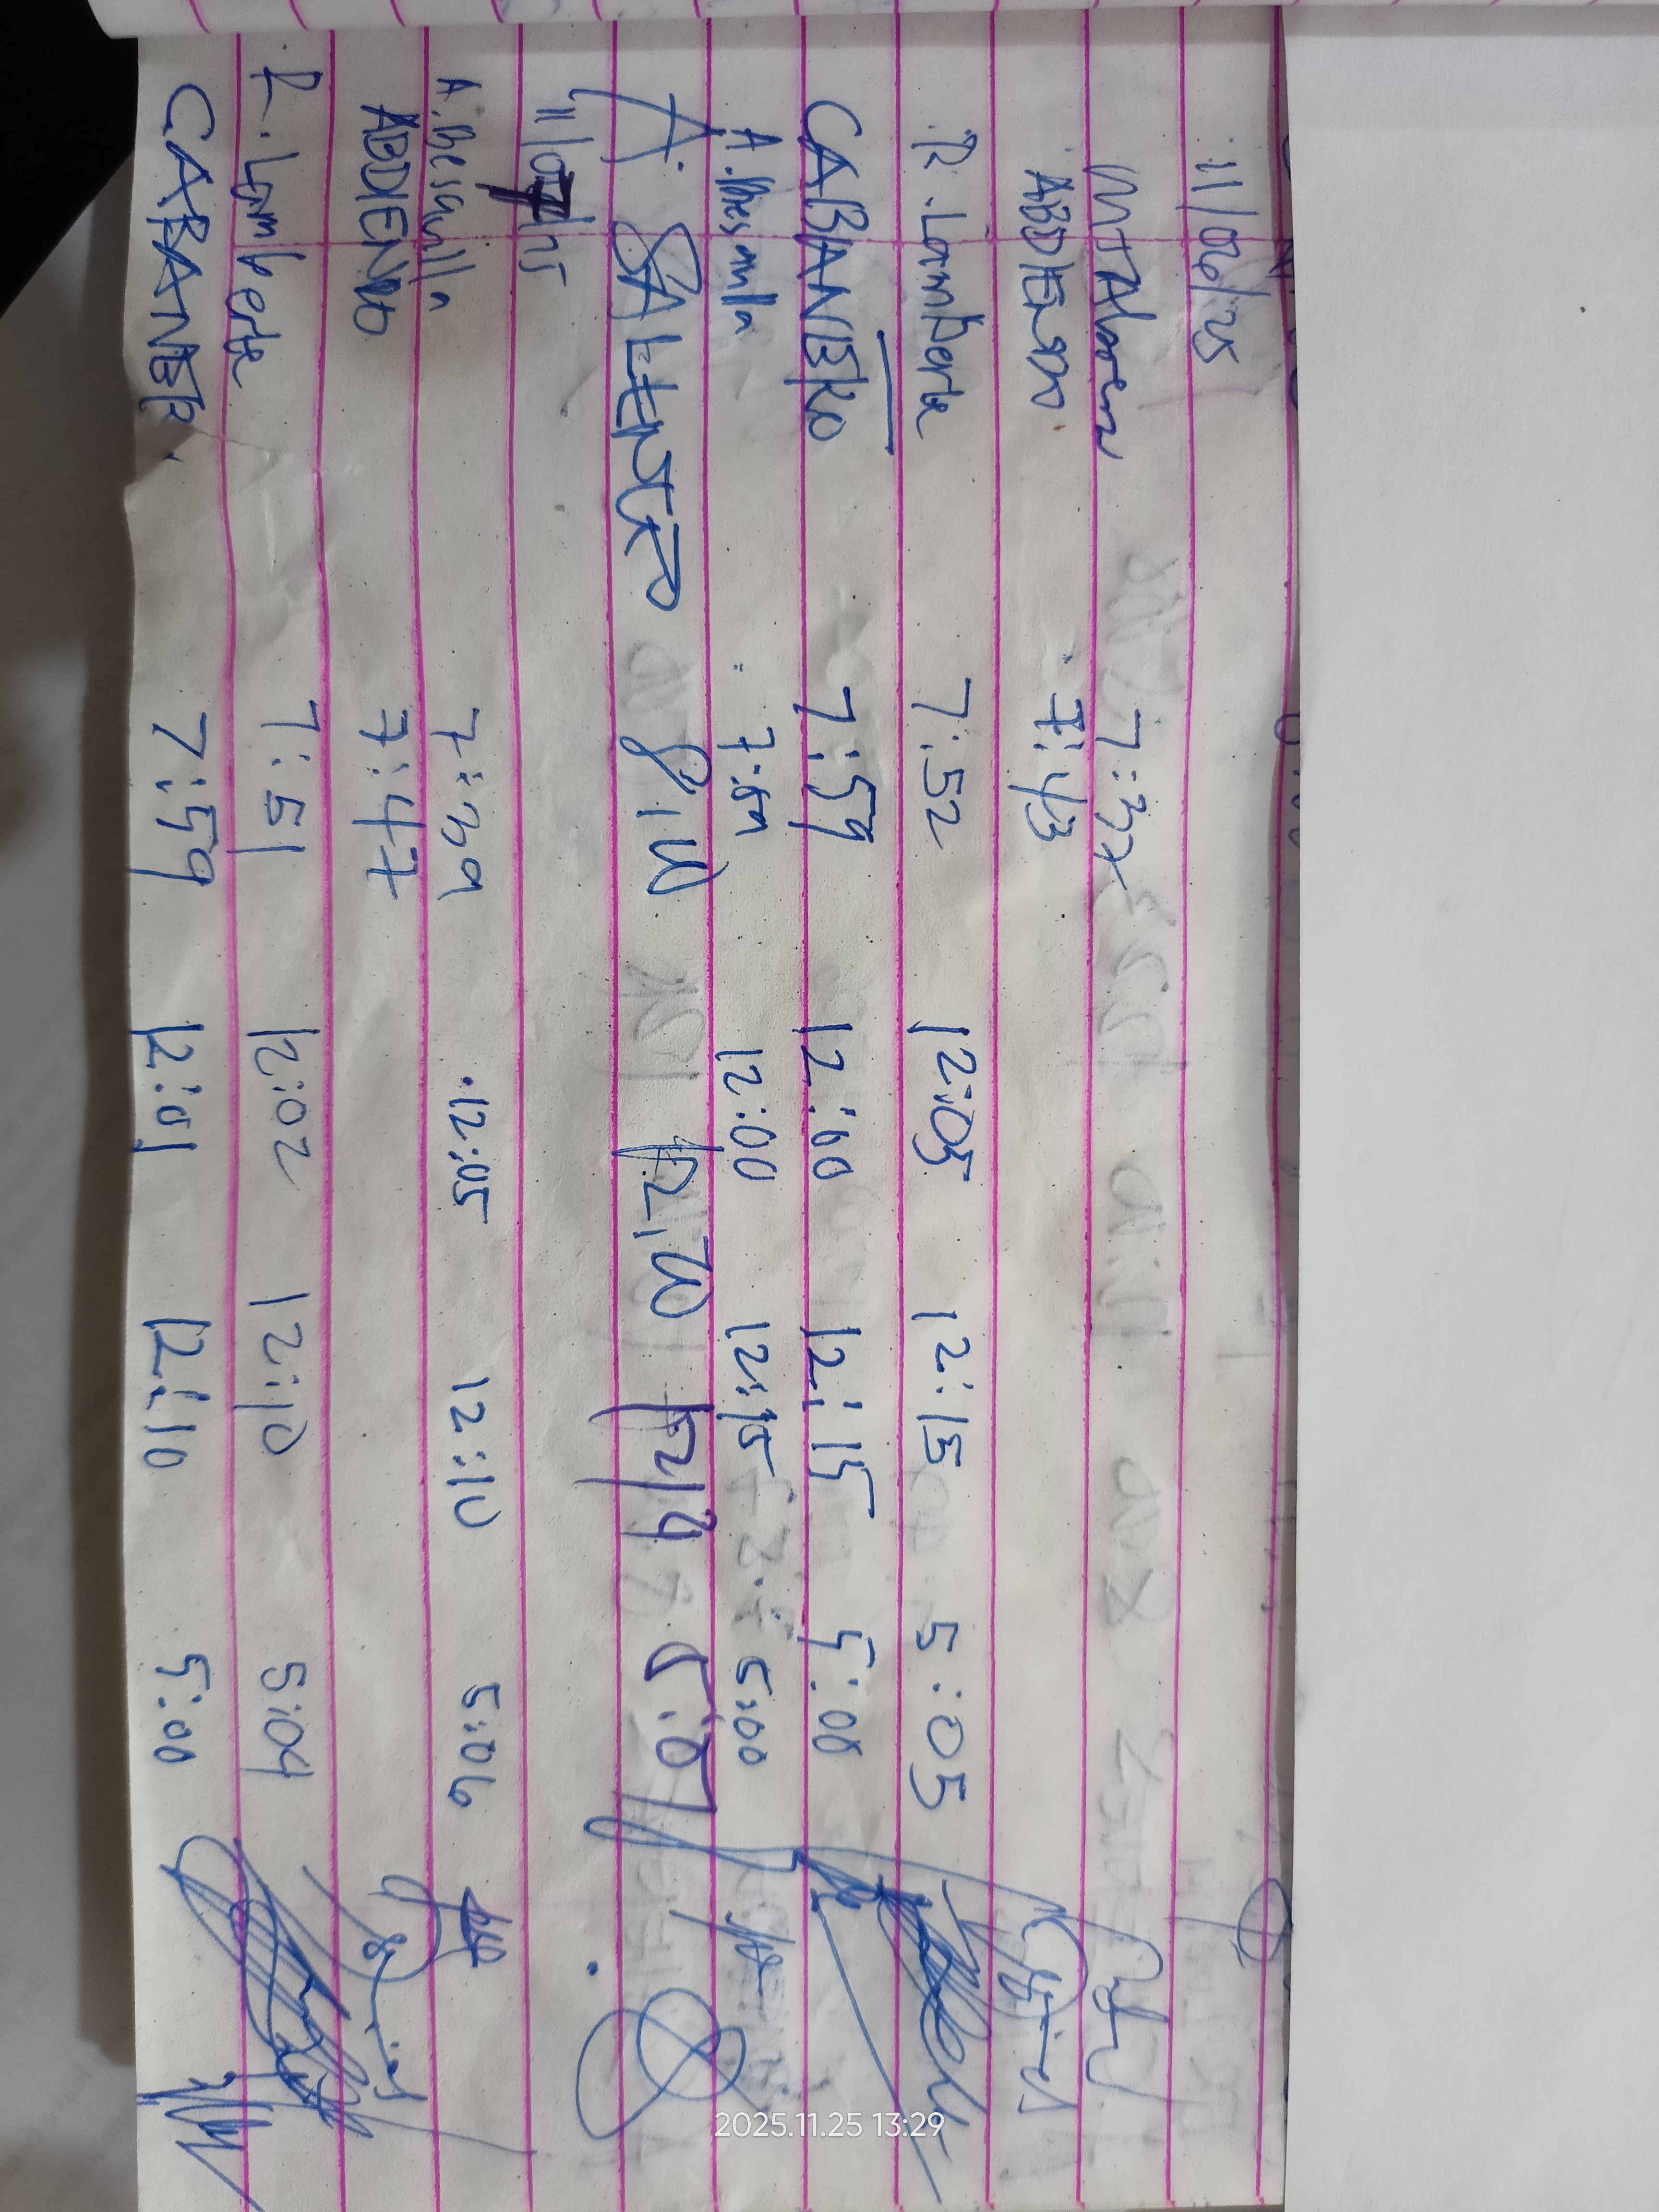 11/06/25
7:3
ABDIENO 7:43
R. Lomberte 7:52 12:05 12:15 5:05
CABANERO 7:59 12:00 12:15 5:00
A. Besmlla 7:59 12:00 12:15 5:00
A. SALENTO 8:10 12:20
11/07/25
A. Besmlla 7:39 12:05 12:10 5:06
ABDIENO 7:47
R. Lomberte 7:51 12:02 12:10 5:04
CABANER 7:59 12:01 12:10 5:00
2025.11.25 13:29